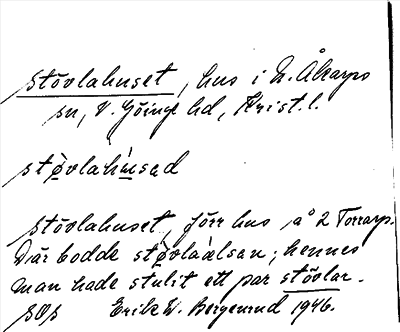 stövlahuset, hus i N. Åkarps
sn, V. Göinge hd, Krist. l.
støvlahúsəd
stövlahuset, förr hus å 2 Torrarp.
Där bodde støvlaàlsan; hennes
man hade stulit ett par stövlar.
sOs Erik W. Bergenrud 1946.